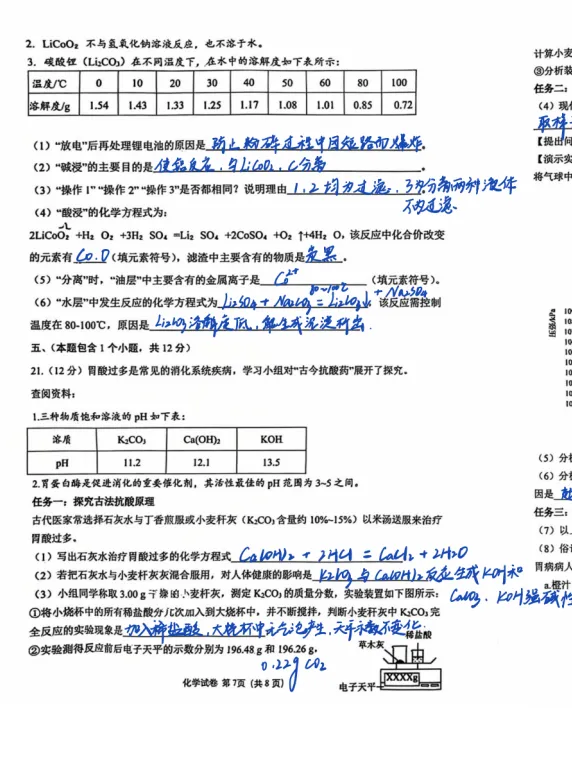 2. LiCoO₂ 不与氢氧化钠溶液反应，也不溶于水。
3. 碳酸锂（Li₂CO₃）在不同温度下，在水中的溶解度如下表所示：
温度/℃ 0 10 20 30 40 50 60 80 100
溶解度/g 1.54 1.43 1.33 1.25 1.17 1.08 1.01 0.85 0.72
（1）“放电”后再处理锂电池的原因是 防止粉碎过程中因短路而爆炸。
（2）“碱浸”的主要目的是 使铝反应，与LiCoO₂、C分离 。
（3）“操作1”“操作2”“操作3”是否都相同？说明理由 1、2均为过滤，3为分离两种液体
不为过滤。
（4）“酸浸”的化学方程式为：
2LiCoO₂ +H₂ O₂ +3H₂ SO₄ =Li₂ SO₄ +2CoSO₄ +O₂ ↑+4H₂ O，该反应中化合价改变
的元素有 Co、O （填元素符号），滤渣中主要含有的物质是 炭黑 。
（5）“分离”时，“油层”中主要含有的金属离子是 Co²⁺ （填元素符号）。
（6）“水层”中发生反应的化学方程式为 Li₂SO₄ + Na₂CO₃ =80~100℃= Li₂CO₃↓ + Na₂SO₄ 该反应需控制
温度在 80-100℃，原因是 Li₂CO₃溶解度低，能生成沉淀析出 .
五、（本题包含 1 个小题，共 12 分）
21.（12 分）胃酸过多是常见的消化系统疾病，学习小组对“古今抗酸药”展开了探究。
查阅资料：
1.三种物质饱和溶液的 pH 如下表：
溶质 K₂CO₃ Ca(OH)₂ KOH
pH 11.2 12.1 13.5
2.胃蛋白酶是促进消化的重要催化剂，其活性最佳的 pH 范围为 3~5 之间。
任务一：探究古法抗酸原理
古代医家常选择石灰水与丁香煎服或小麦秆灰（K₂CO₃ 含量约 10%~15%）以米汤送服来治疗
胃酸过多。
（1）写出石灰水治疗胃酸过多的化学方程式 Ca(OH)₂ + 2HCl = CaCl₂ + 2H₂O
（2）若把石灰水与小麦秆灰灰混合服用，对人体健康的影响是 K₂CO₃与Ca(OH)₂反应生成KOH和
CaCO₃、KOH强碱性
（3）小组同学称取 3.00 g 干燥的小麦秆灰，测定 K₂CO₃ 的质量分数，实验装置如下图所示：
①将小烧杯中的所有稀盐酸分几次加入到大烧杯中，并不断搅拌，判断小麦秆灰中 K₂CO₃ 完
全反应的实验现象是 加入稀盐酸，大烧杯中无气泡产生，天平示数不变化.
②实验测得反应前后电子天平的示数分别为 196.48 g 和 196.26 g，
0.22g CO₂
稀盐酸
草木灰
电子天平
XXXXg
化学试卷 第 7页（共 8 页）
计算小麦
③分析装
任务二：
（4）现代
取样
【提出问
【演示实
将气球中
压强/kPa
（5）分析
（6）分析
因是
任务三：
（7）以
（8）俗话
胃病病人
a.橙汁